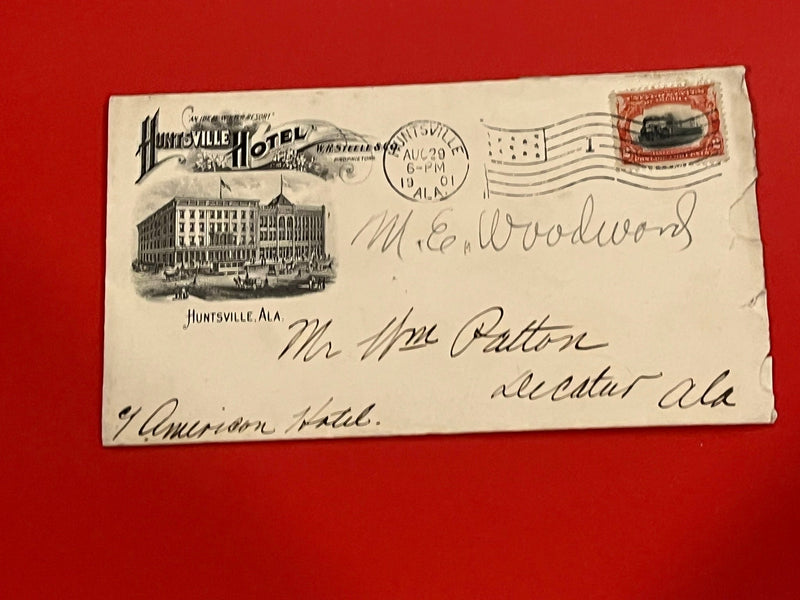 "AN IDEAL WINTER RESORT"
HUNTSVILLE HOTEL
W.R. STEELE & CO.
PROPRIETORS
HUNTSVILLE, ALA.
HUNTSVILLE
AUG 29
6-PM
19 01
ALA.
1
UNITED STATES
OF AMERICA
2 2
M. E. Woodword
Mr Wm Patton
Decatur Ala
c/ American Hotel.